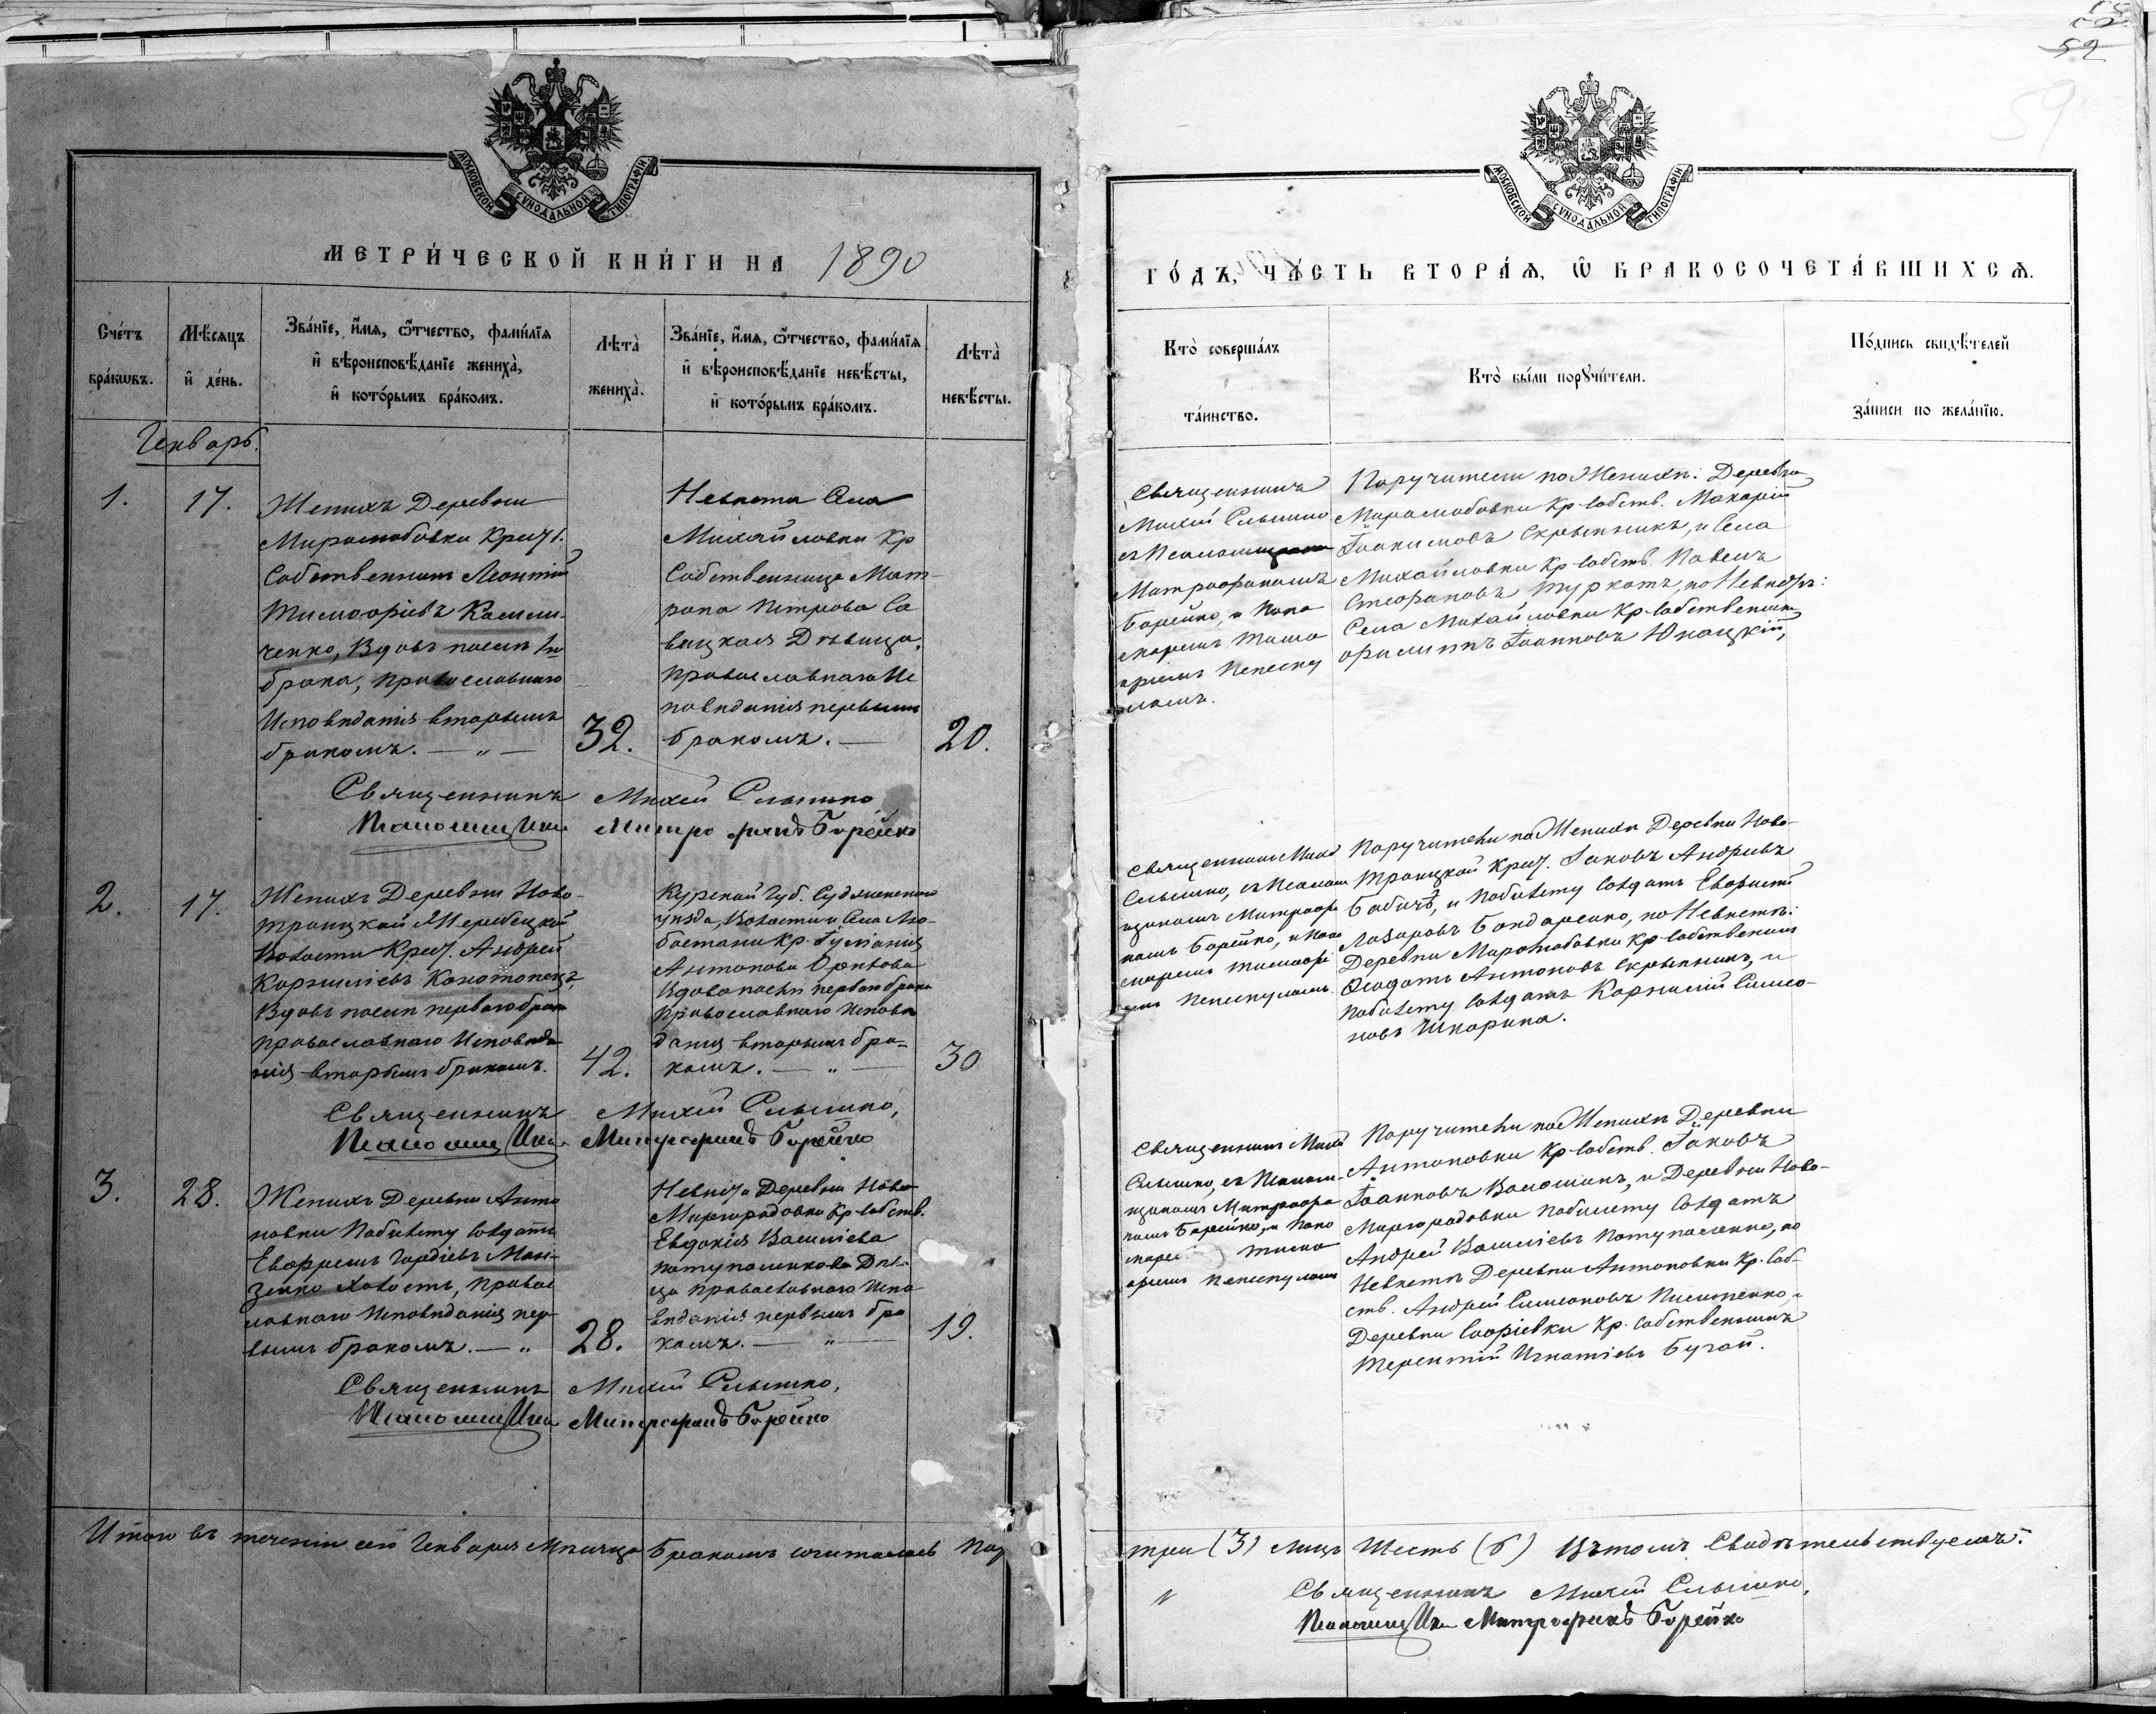 МОСКОВСКОЙ СѴНОДАЛЬНОЙ ТИПОГРАФІИ
МЕТРИ́ЧЕСКОЙ КНИ́ГИ НА 1890
Сче́тъ бра́кѡвъ.
Мѣ́сяцъ и҆ де́нь.
Зва́нїе, и҆́мѧ, ѻ҆́тчество, фами́лїѧ
и҆ вѣроисповѣ́данїе жениха̀,
и҆ кото́рымъ бра́комъ.
Лѣта̀ жениха̀.
Зва́нїе, и҆́мѧ, ѻ҆́тчество, фами́лїѧ
и҆ вѣроисповѣ́данїе невѣ́сты,
и҆ кото́рымъ бра́комъ.
Лѣта̀ невѣ́сты.
Генварь.
1.
17.
Женихъ Деревни
Миролюбовки Крест.
Собственникъ Леонтій
Тимофіевъ
ченко, Вдовъ послѣ 1го
брака, православнаго
Исповѣданія вторымъ
бракомъ. — „ —
32.
Невѣста Села
Михайловки Кр
Собственница Мат-
рона Петрова Са
вицкая Дѣвица,
православнаго Ис
повѣданія первымъ
бракомъ. —
20.
Священникъ Михей Слышко
Псаломщикъ Митрофанъ Борейко
2.
17.
Женихъ Деревни Ново-
троицкой Жеребецкой
Волости Крест. Андрей
Корниліевъ Конотопецъ,
Вдовъ послѣ перваго брака
православнаго Исповѣда
нія вторымъ бракомъ.
42.
Курской Губ. Суджанскаго
уѣзда, Волости и Села Лю-
бостани Кр. Іуліанія
Антонова
Вдова послѣ перваго брака
православнаго Исповѣ
данія вторымъ бра-
комъ. — „ —
30
Священникъ Михей Слышко,
Псаломщикъ Митрофанъ Борейко
3.
28.
Женихъ Деревни Анто
новки по билету солдатъ
Евфремъ Гордіевъ Ман-
зенко Холостъ, Правос
лавнаго Исповѣданія пер-
вымъ бракомъ. — „
28.
Невѣста Деревни Ново
Миргородовки Кр. собств.
Евдокія Василіева
Потупаленкова Дѣви
ца православнаго Испо
вѣданія первымъ бра
комъ. — „ —
19.
Священникъ Михей Слышко,
Псаломщикъ Митрофанъ Борейко
Итого въ теченіи сего Генваря Мѣсяца Бракомъ сочиталось Пар
52
59
МОСКОВСКОЙ СѴНОДАЛЬНОЙ ТИПОГРАФІИ
ГО́ДЪ, ЧА́СТЬ ВТОРА́Ѧ, Ѡ҆ БРАКОСОЧЕТА́ВШИХСѦ.
Кто̀ соверша́лъ
та́инство.
Кто̀ бы́ли порꙋчи́тели.
По́дпись свидѣ́телей
за́писи по жела́нїю.
Священникъ
Михей Слышко
съ Псаломщикомъ
Митрофаномъ
Борейко, и Поно
маремъ Тимо
фіемъ Пепеску
ломъ.
Поручители по Женихѣ: Деревни
Миролюбовки Кр. собств. Макарій
Іоакимовъ Скрыпникъ, и Села
Михайловки Кр. собств. Павелъ
Стефановъ Туркотъ, по Невѣстѣ:
Села Михайловки Кр. собственникъ
Филиппъ Іоанновъ Юнацкій,
Священникъ Михей
Слышко, съ Псалом
щикомъ Митрофа
номъ Борейко, и Поно
маремъ Тимофі
емъ Пепескуломъ.
Поручители по Женихѣ Деревни Ново-
троицкой Крест. Іаковъ Андріевъ
Бабичъ, и по билету Солдатъ Евфимій
Лазаровъ Бондаренко, по Невѣстѣ:
Деревни Миролюбовки Кр. собственникъ
Феодотъ Антоновъ Скрыпникъ, и
по билету солдатъ Корнилій Симео-
новъ Шкарина.
Священникъ Михей
Слышко, съ Псалом-
щикомъ Митрофа
номъ Борейко, и Поно
маре Тимо
фіемъ Пепескуломъ
Поручители по Женихѣ Деревни
Антоновки Кр. собств. Іаковъ
Іоанновъ Волошинъ, и Деревни Ново-
Миргородовки по билету Солдатъ
Андрей Василіевъ Потупаленко, по
Невѣстѣ Деревни Антоновки Кр. Соб-
ств. Андрей Симеоновъ Писаренко, и
Деревни Софіевки Кр. собственникъ
Терентій Игнатіевъ Бугай.
три (3) лицъ Шесть (6) Въ томъ Свидѣтельствуемъ:
Священникъ Михей Слышко,
Псаломщикъ Митрофанъ Борейко